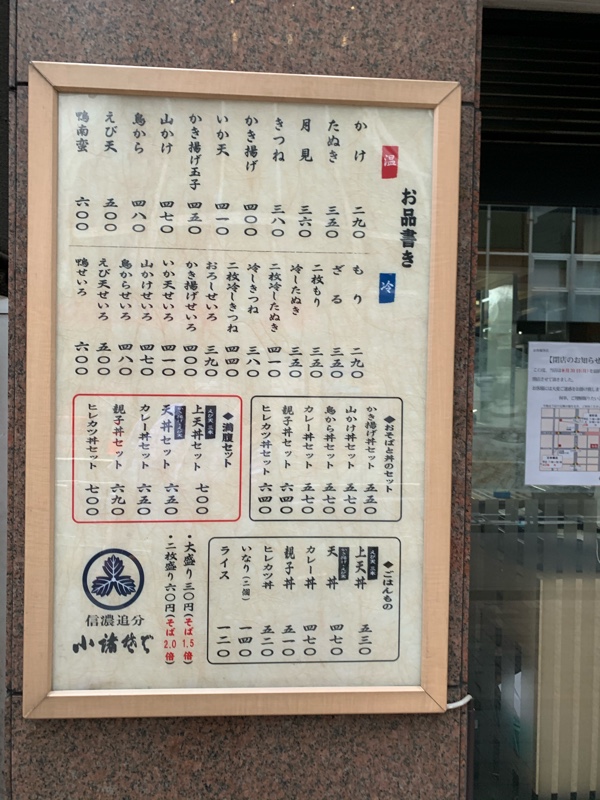 お品書き
温
かけ 二九〇
たぬき 三五〇
月見 三六〇
きつね 三八〇
かき揚げ 四〇〇
いか天 四一〇
かき揚げ玉子 四五〇
山かけ 四七〇
鳥から 四八〇
えび天 五〇〇
鴨南蛮 六〇〇
冷
もり 二九〇
ざる 三五〇
二枚もり 三五〇
冷したぬき 三五〇
二枚冷したぬき 四一〇
冷しきつね 三八〇
二枚冷しきつね 四四〇
おろしせいろ 三九〇
かき揚げせいろ 四〇〇
いか天せいろ 四一〇
山かけせいろ 四七〇
鳥からせいろ 四八〇
えび天せいろ 五〇〇
鴨せいろ 六〇〇
◆おそばと丼のセット
かき揚げ丼セット 五五〇
山かけ丼セット 五七〇
鳥から丼セット 五七〇
カレー丼セット 五七〇
親子丼セット 六四〇
ヒレカツ丼セット 六四〇
◆満腹セット
上天丼セット 七〇〇
天丼セット 六五〇
カレー丼セット 六五〇
親子丼セット 六九〇
ヒレカツ丼セット 七〇〇
◆ごはんもの
上天丼 五三〇
天丼 四七〇
カレー丼 四七〇
親子丼 五一〇
ヒレカツ丼 五二〇
いなり(二個) 一四〇
ライス 一二〇
・大盛り三〇円(そば1.5倍)
・二枚盛り六〇円(そば2.0倍)
信濃追分
小諸そば
【閉店のお知らせ